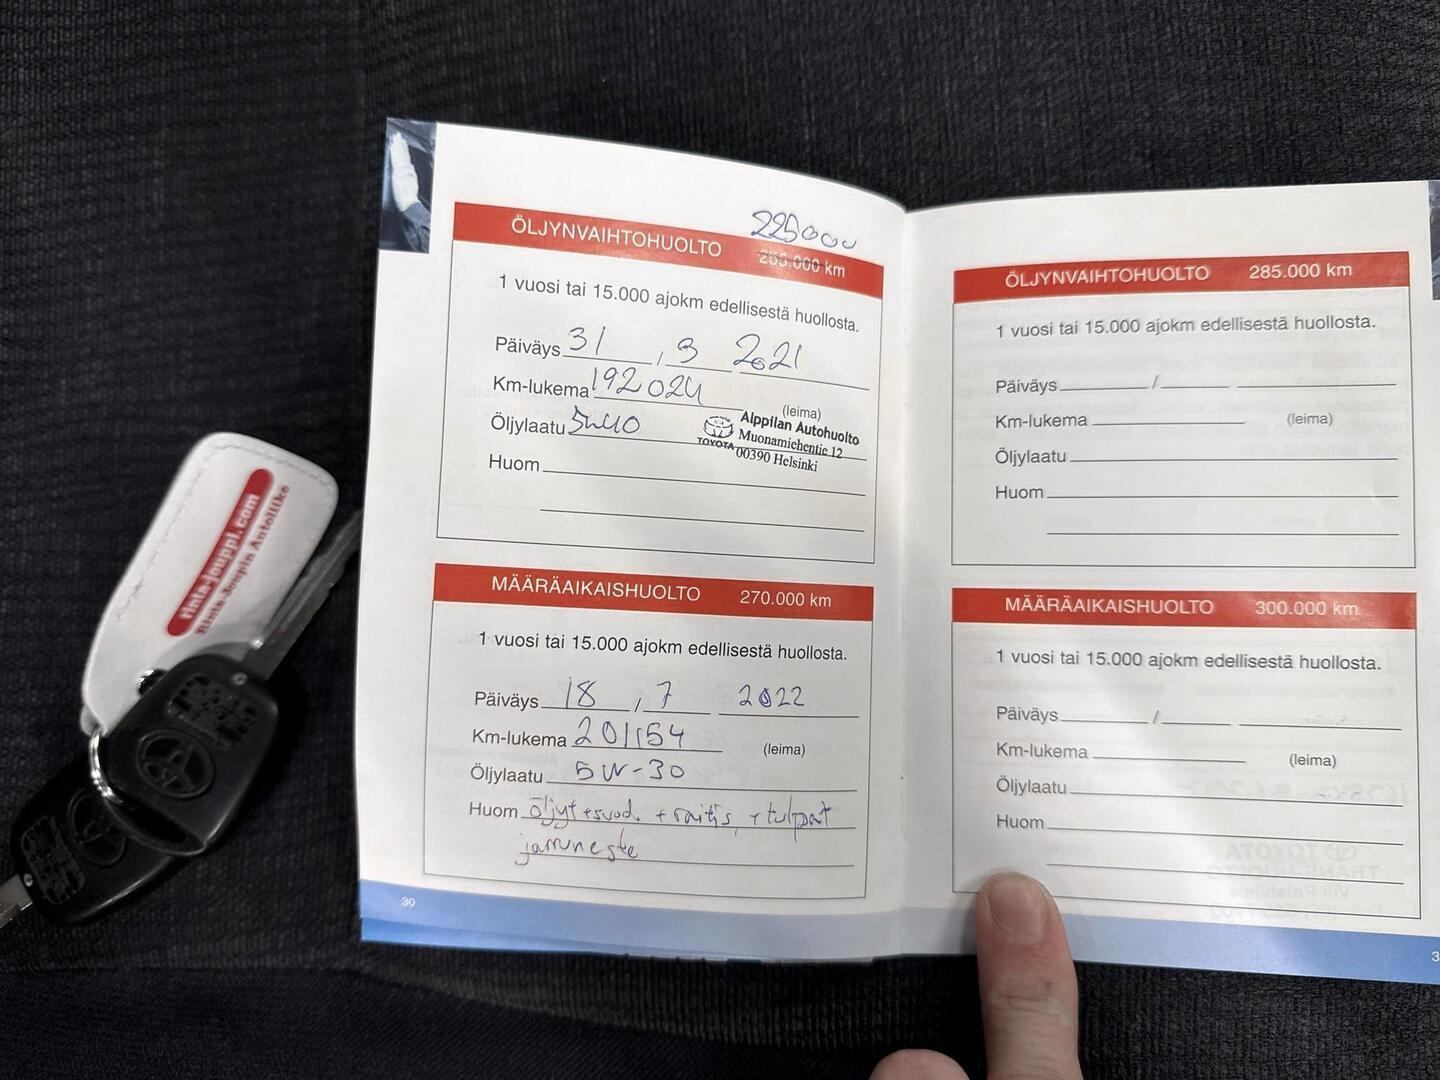 225000
ÖLJYNVAIHTOHUOLTO 255.000 km
1 vuosi tai 15.000 ajokm edellisestä huollosta.
Päiväys 31 , 3 2021
Km-lukema 192024
(leima)
Öljylaatu 5W40
Alppilan Autohuolto
TOYOTA Muonamiehentie 12
00390 Helsinki
Huom
MÄÄRÄAIKAISHUOLTO 270.000 km
1 vuosi tai 15.000 ajokm edellisestä huollosta.
Päiväys 18 / 7 2022
Km-lukema 201154 (leima)
Öljylaatu 5W-30
Huom öljyt+suod. +raitis, + tulpat
jarruneste
30
ÖLJYNVAIHTOHUOLTO 285.000 km
1 vuosi tai 15.000 ajokm edellisestä huollosta.
Päiväys /
Km-lukema (leima)
Öljylaatu
Huom
MÄÄRÄAIKAISHUOLTO 300.000 km
1 vuosi tai 15.000 ajokm edellisestä huollosta.
Päiväys /
Km-lukema (leima)
Öljylaatu
Huom
rinta-jouppi.com
Rinta-Joupin Autoliike